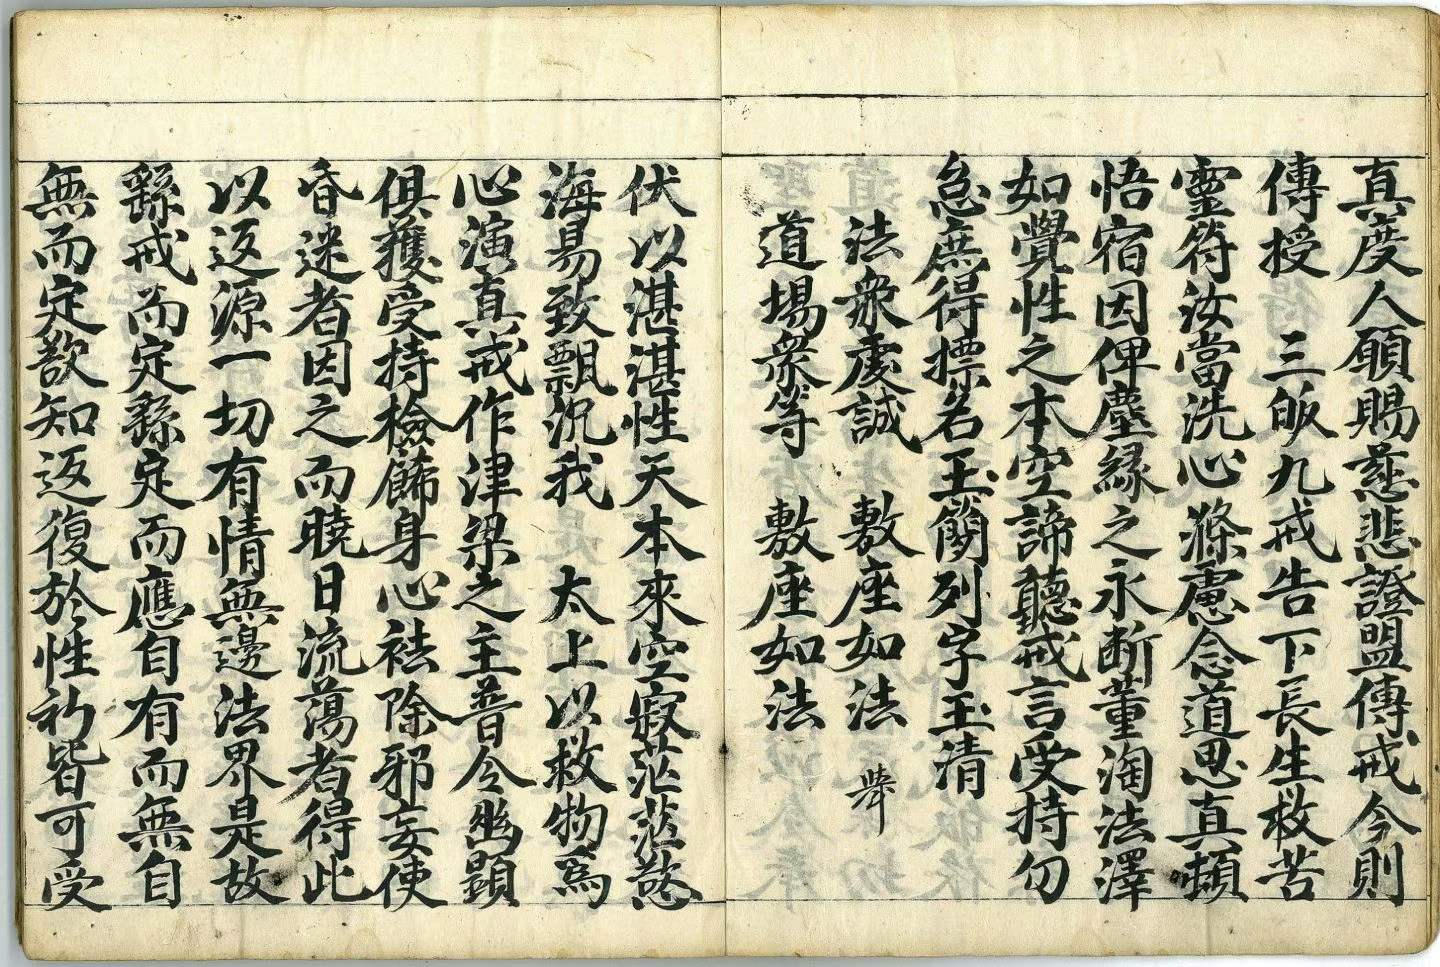 真度人願賜慈悲證盟傳戒今則
傳授　三皈九戒告下長生救苦
靈符汝當洗心滌慮念道思真頓
悟宿因俾塵緣之永断薰淘法澤
如覺性之本空諦聽戒言受持勿
怠庶得標名玉簡列字玉清
法衆虔誠　敷座如法　举
道場衆等　敷座如法
伏以湛湛性天本來空寂茫茫慾
海易致飄沉我　太上以救物爲
心演真戒作津梁之主普令幽顯
俱獲受持檢飾身心祛除邪妄使
昏迷者因之而曉日流蕩者得此
以返源一切有情無邊法界是故
繇戒而定繇定而應自有而無自
無而定歘知返復於性初皆可受